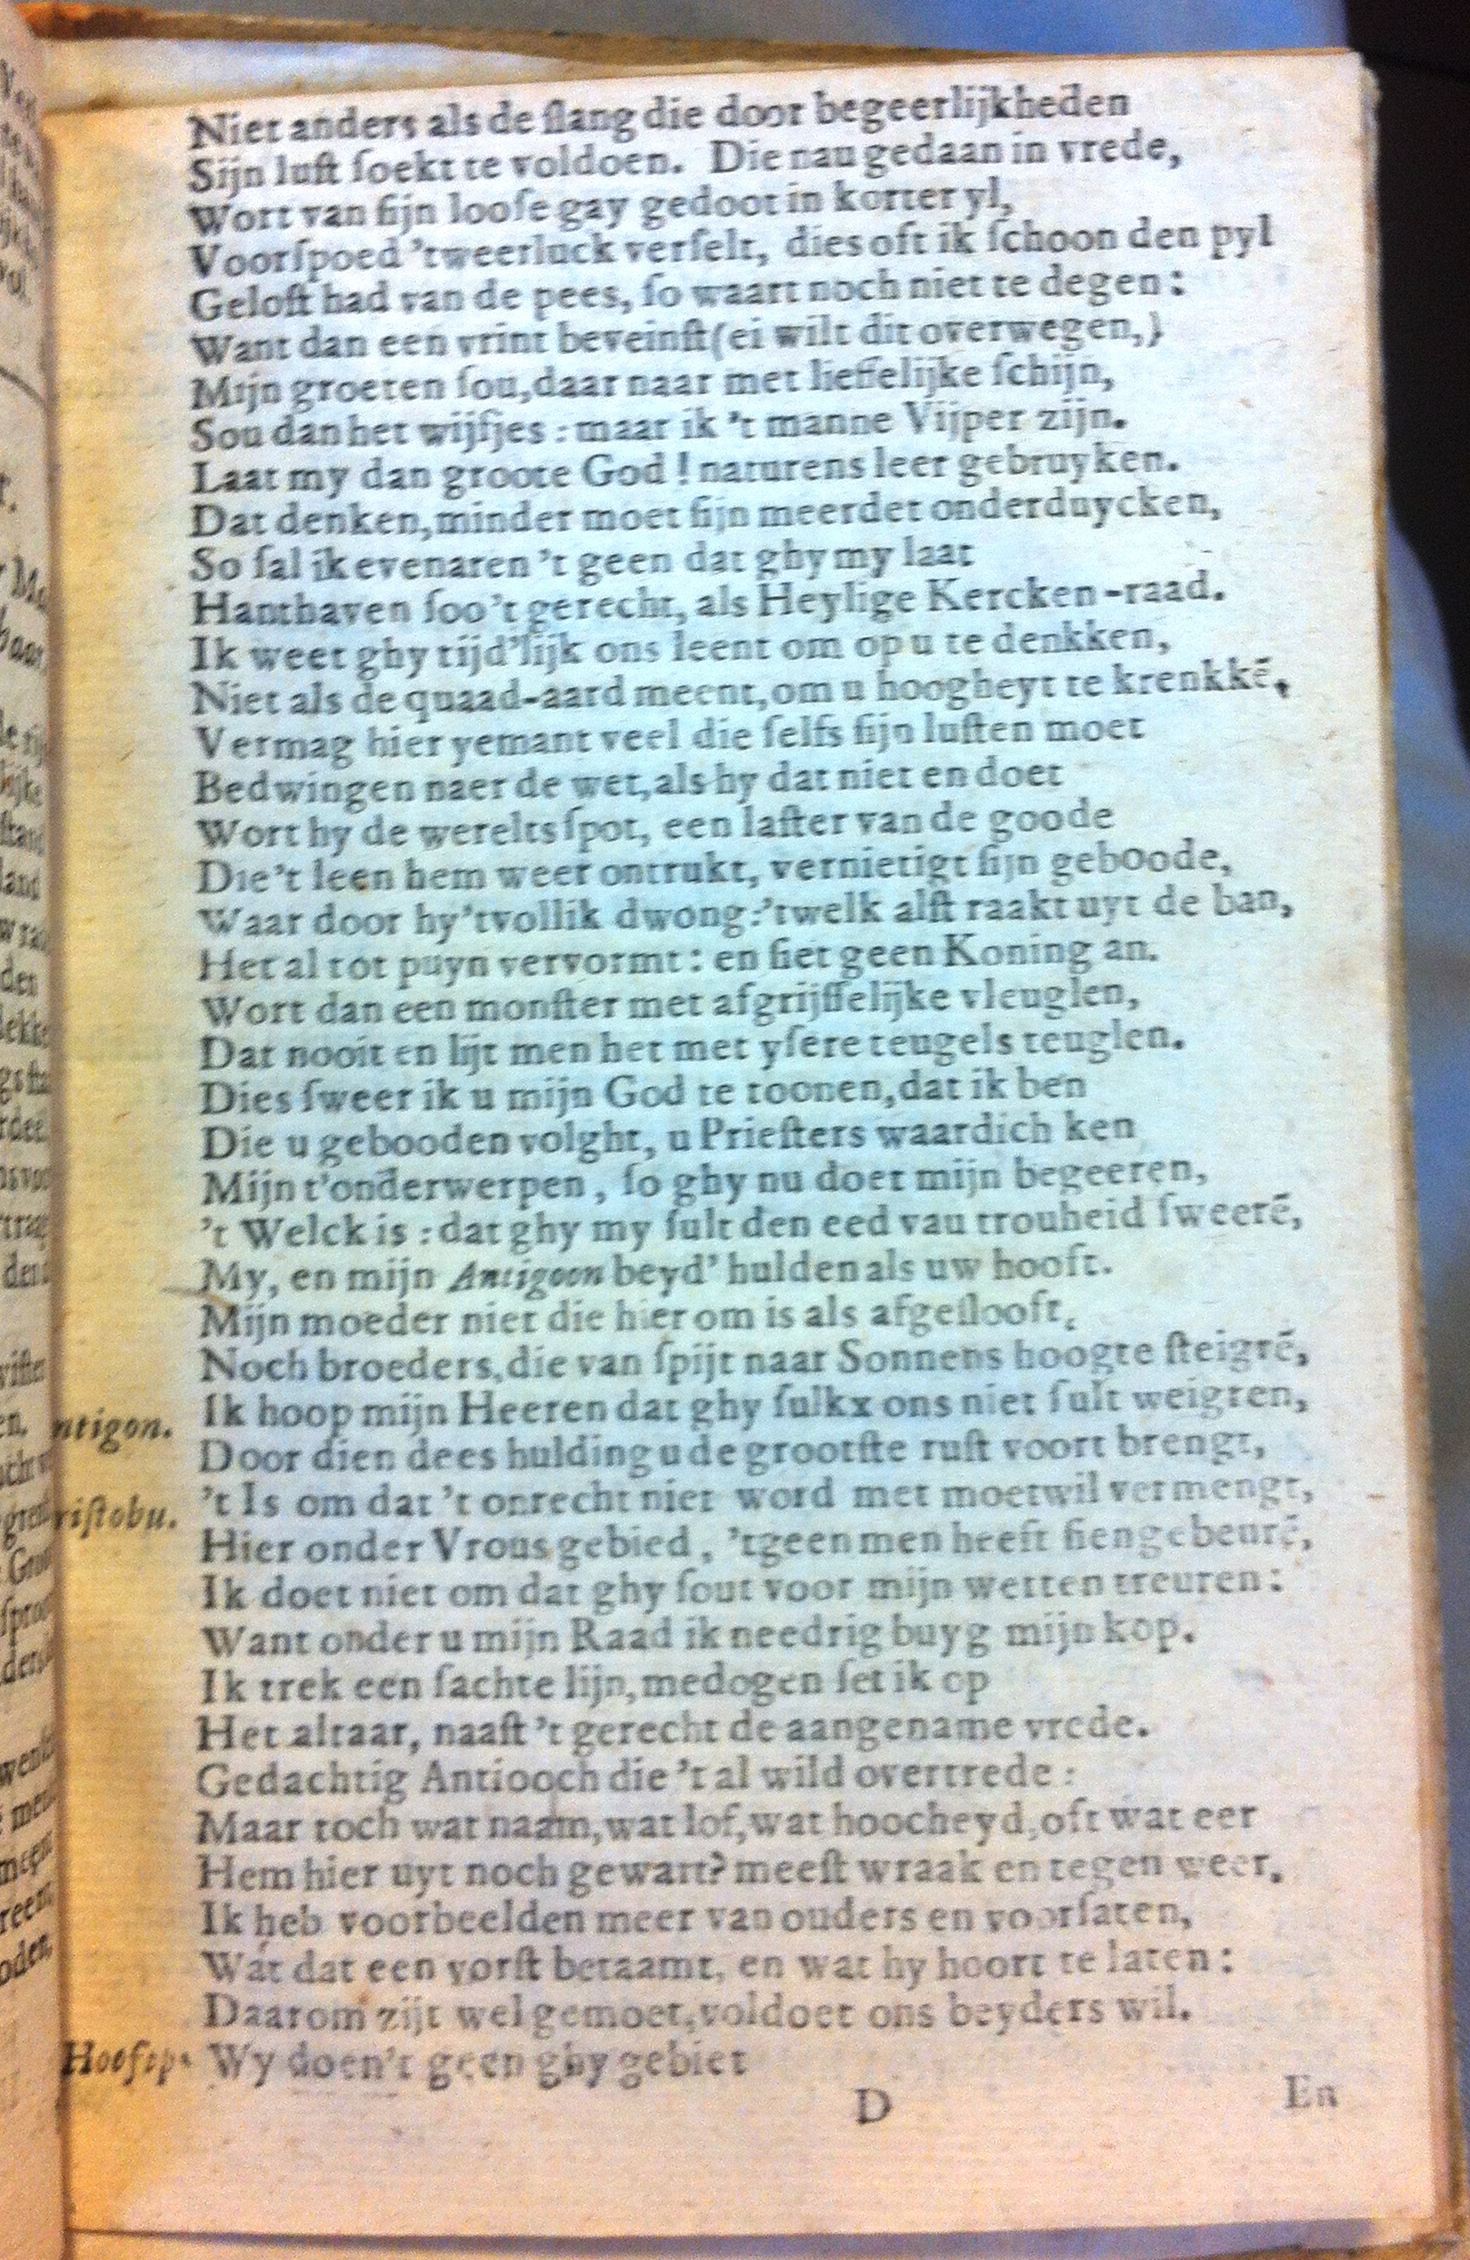 Niet anders als de ſlang die door begeerlijkheden
Sijn luſt ſoekt te voldoen. Die nau gedaan in vrede,
Wort van ſijn looſe gay gedoot in korter yl,
Voorſpoed 'tweerluck verſelt, dies oft ik ſchoon den pyl
Geloſt had van de pees, ſo waart noch niet te degen:
Want dan een vrint beveinſt (ei wilt dit overwegen,)
Mijn groeten ſou, daar naar met lieffelijke ſchijn,
Sou dan het wijfjes: maar ik 't manne Vijper zijn.
Laat my dan groote God! naturens leer gebruyken.
Dat denken, minder moet ſijn meerdet onderduycken,
So ſal ik evenaren 't geen dat ghy my laat
Hanthaven ſoo 't gerecht, als Heylige Kercken-raad.
Ik weet ghy tijd'lijk ons leent om op u te denkken,
Niet als de quaad-aard meent, om u hoogheyt te krenkkē,
Vermag hier yemant veel die ſelfs ſijn luſten moet
Bedwingen naer de wet, als hy dat niet en doet
Wort hy de werelts ſpot, een laſter van de goode
Die 't leen hem weer ontrukt, vernietigt ſijn geboode,
Waar door hy 'tvollik dwong: 'twelk alſt raakt uyt de ban,
Het al tot puyn vervormt: en ſiet geen Koning an.
Wort dan een monſter met afgrijſſelijke vleuglen,
Dat nooit en lijt men het met yſere teugels teuglen.
Dies ſweer ik u mijn God te toonen, dat ik ben
Die u gebooden volght, u Prieſters waardich ken
Mijn t'onderwerpen, ſo ghy nu doet mijn begeeren,
't Welck is: dat ghy my ſult den eed vau trouheid ſweerē,
My, en mijn Antigoon beyd' hulden als uw hooft.
Mijn moeder niet die hier om is als afgeſlooft,
Noch broeders, die van ſpijt naar Sonnens hoogte ſteigrē,
Ik hoop mijn Heeren dat ghy ſulkx ons niet ſult weigren,
ntigon. Door dien dees hulding u de grootſte ruſt voort brengt,
't Is om dat 't onrecht niet word met moetwil vermengt,
riſtobu. Hier onder Vrous gebied, 'tgeen men heeft ſien gebeurē,
Ik doet niet om dat ghy ſout voor mijn wetten treuren:
Want onder u mijn Raad ik needrig buyg mijn kop.
Ik trek een ſachte lijn, medogen ſet ik op
Het altaar, naaſt 't gerecht de aangename vrede.
Gedachtig Antiooch die 't al wild overtrede:
Maar toch wat naam, wat lof, wat hoocheyd, oft wat eer
Hem hier uyt noch gewart? meeſt wraak en tegen weer.
Ik heb voorbeelden meer van ouders en voorſaten,
Wat dat een vorſt betaamt, en wat hy hoort te laten:
Daarom zijt wel gemoet, voldoet ons beyders wil.
Hooftp. Wy doen't geen ghy gebiet
D En